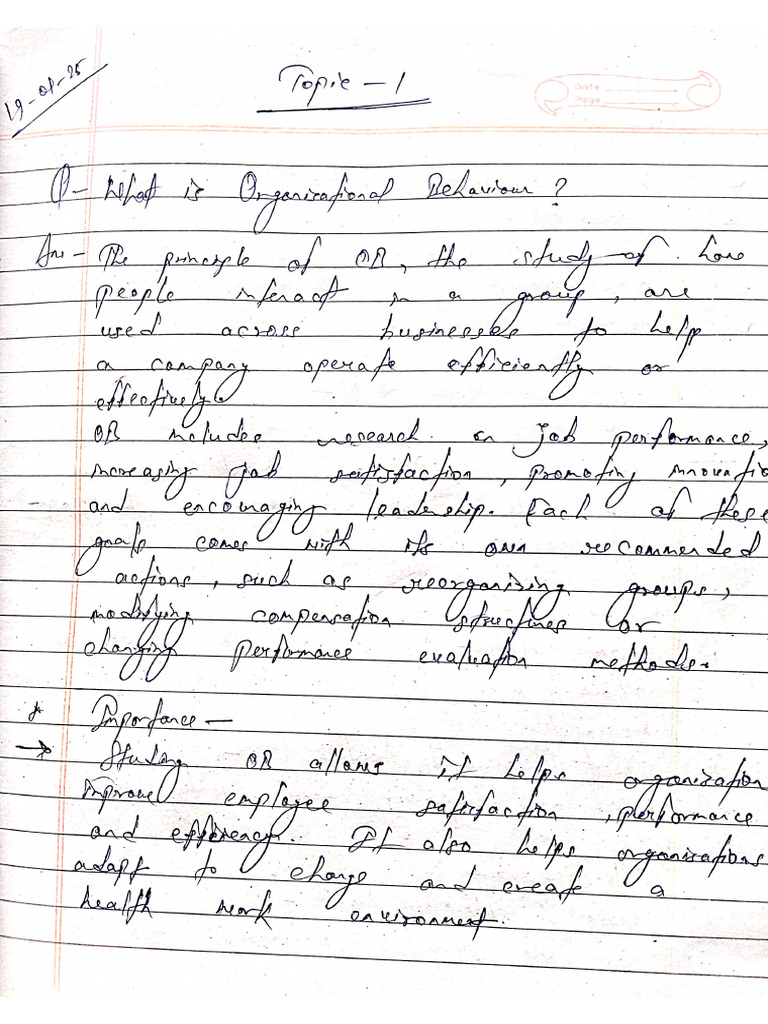 19-01-25
Topic - 1
Date
Page
Q- What is Organisational Behaviour ?
Ans - The principle of OB, the study of how
people interact in a group, are
used across businesses to help
a company operate efficiently or
effectively.
OB includes research on job performance,
increasing job satisfaction, promoting innovatio
and encouraging leadership. Each of these
goals comes with its own recommended
actions, such as reorganising groups,
modifying compensation structures or
changing performance evaluation methods.
* Importance -
→ Studing OB allows it helps organisation
Improve employee satisfaction, performance
and efficiency. It also helps organisations
adapt to change and create a
health work environment.